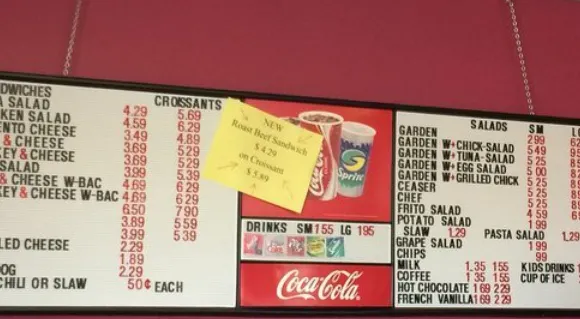 DWICHES
CROISSANTS
A SALAD 4.29 5.69
KEN SALAD 4.59 6.29
ENTO CHEESE 3.49 4.89
& CHEESE 3.69 5.29
KEY & CHEESE 3.69 5.29
SALAD 3.99 5.39
& CHEESE W-BAC 4.69 6.29
KEY & CHEESE W-BAC 4.69 6.29
6.50 7.90
3.89 5.59
3.99 5.39
LED CHEESE 2.29
1.89
OG 2.29
CHILI OR SLAW 50¢ EACH
NEW
Roast Beef Sandwich
$ 4.29
on Croissant
$ 5.89
Coca-Cola
Sprite
DRINKS SM 155 LG 195
Coca-Cola
SALADS SM
GARDEN 299
GARDEN W+CHICK-SALAD 5.49
GARDEN W+TUNA-SALAD 5.25
GARDEN W+EGG SALAD 5.00
GARDEN W+GRILLED CHICK 5.25
CEASER 5.25
CHEF 5.25
FRITO SALAD 4.59
POTATO SALAD 1.99
SLAW 1.29 PASTA SALAD 1,29
GRAPE SALAD 1 99
CHIPS 99
MILK 1.35 155 KIDS DRINKS
COFFEE 1 35 155 CUP OF ICE
HOT CHOCOLATE 1 69 2 29
FRENCH VANILLA 1 69 2 29